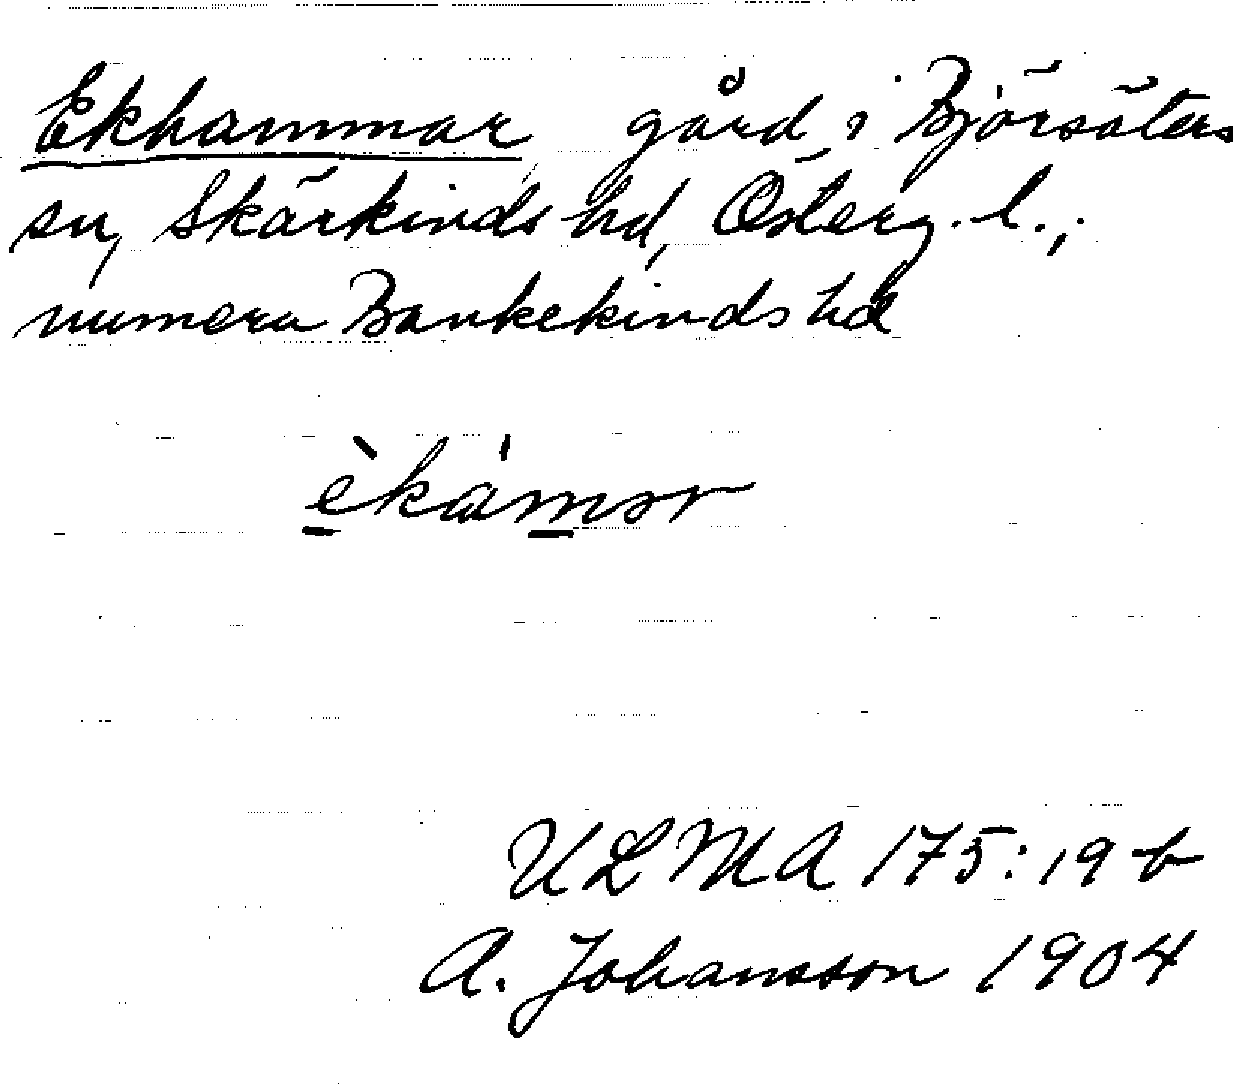 Ekhammar, gård i Björsäters
sn, Skärkinds hd, Österg. l.,
numera Bankekinds hd
èkámər
ULMA 175:19 b
A. Johansson 1904